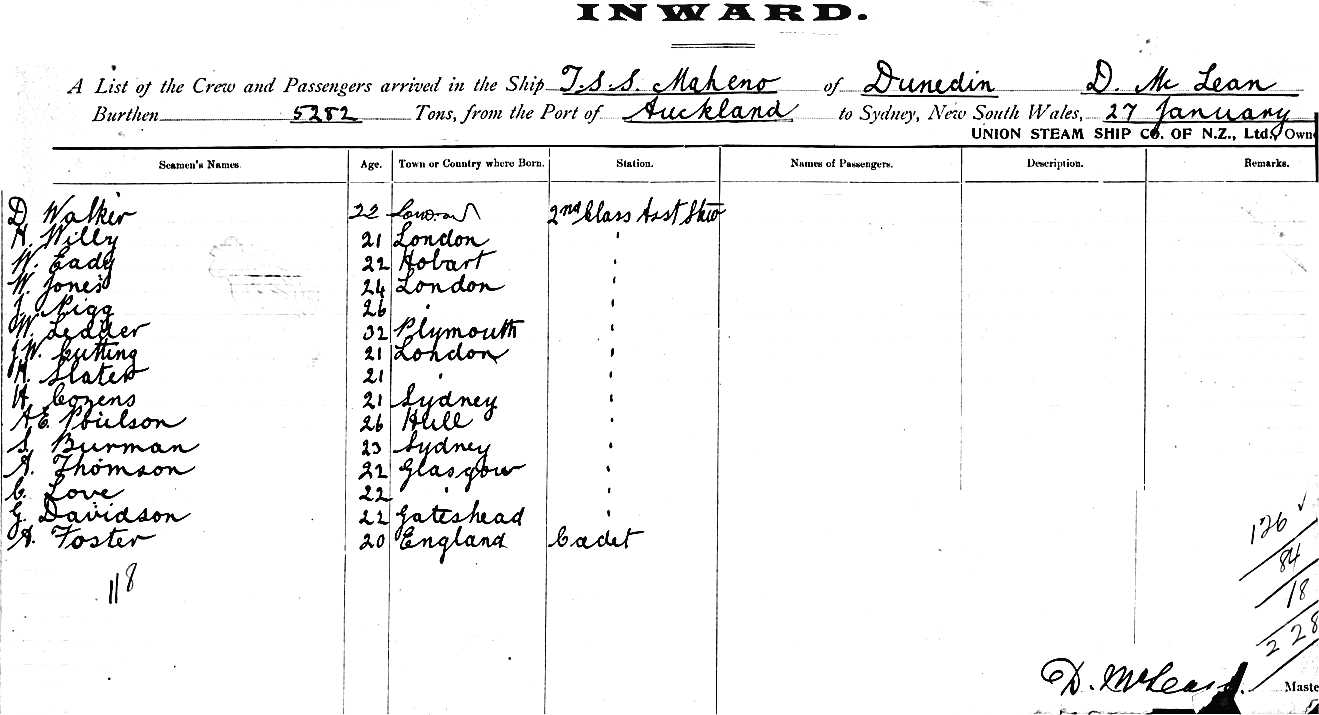 INWARD.
A List of the Crew and Passengers arrived in the Ship T.S.S. Maheno of Dunedin D. McLean
Burthen 5282 Tons, from the Port of Auckland to Sydney, New South Wales, 27 January
UNION STEAM SHIP CO. OF N.Z., Ltd., Own
Seamen's Names. Age. Town or Country where Born. Station. Names of Passengers. Description. Remarks.
D. Walker 22 2nd Class Asst Stew
H. Willy 21 London '
W. Eady 22 Hobart '
W. Jones 24 London '
J. Pigg 26 ' '
W. Ledder 32 Plymouth '
J.W. Cutting 21 London '
H. Slater 21 ' '
H. Cozens 21 Sydney '
A.E. Poulson 26 Hull '
S. Burman 23 Sydney '
A. Thomson 22 Glasgow '
C. Love 22 ' '
G. Davidson 22 Gateshead '
A. Foster 20 England Cadet
118
126 ✓
84
18
228
D. McLean. Maste